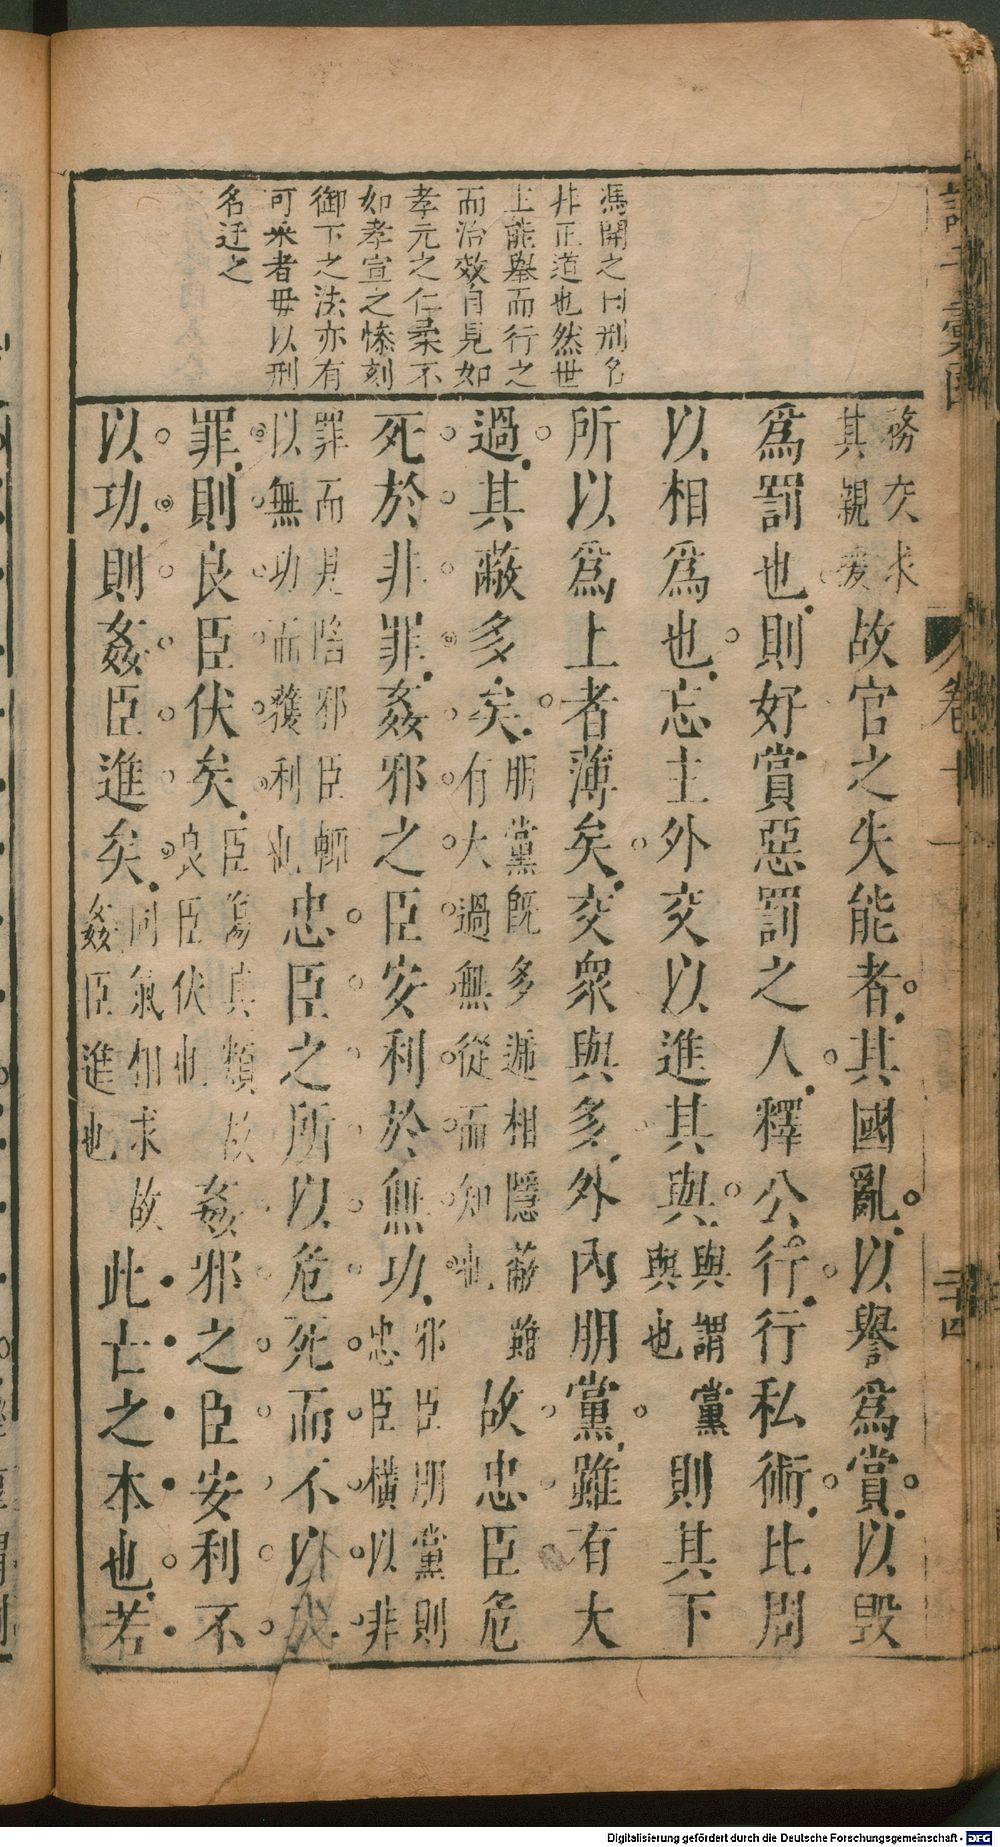 馮開之曰刑名
非正道也然世
上能舉而行之
而治效自見如
孝元之仁柔不
如孝宣之慘刻
御下之法亦有
可采者毋以刑
名迂之
務交求
其親愛
故官之失能者其國亂以譽爲賞以毀
爲罰也則好賞惡罰之人釋公行行私術比周
以相爲也忘主外交以進其與
與謂黨
與也
則其下
所以爲上者薄矣交衆與多外內朋黨雖有大
過其蔽多矣
朋黨旣多遞相隱蔽雖
有大過無從而知也
故忠臣危
死於非罪姦邪之臣安利於無功
邪臣朋黨則
忠臣橫以非
罪而見陷邪臣輒
以無功而獲利也
忠臣之所以危死而不以
罪則良臣伏矣
臣傷真類故
良臣伏也
姦邪之臣安利不
以功則姦臣進矣
同氣相求故
姦臣進也
此亡之本也若
卷十一
二十四
Digitalisierung gefördert durch die Deutsche Forschungsgemeinschaft - DFG